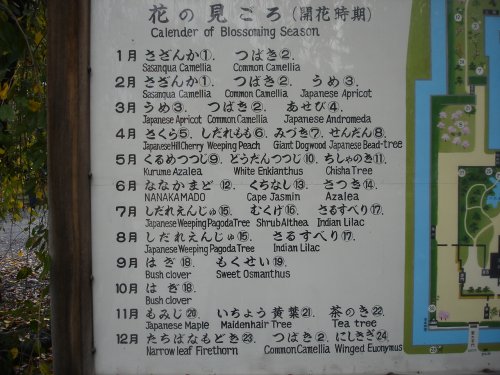 花の見ごろ(開花時期)
Calender of Blossoming Season
1月 さざんか①. つばき②.
Sasanqua Camellia Common Camellia
2月 さざんか①. つばき②. うめ③.
Sasanqua Camellia Common Camellia Japanese Apricot
3月 うめ③. つばき②. あせび④.
Japanese Apricot Common Camellia Japanese Andromeda
4月 さくら⑤. しだれもも⑥. みづき⑦. せんだん⑧.
Japanese Hill Cherry Weeping Peach Giant Dogwood Japanese Bead-tree
5月 くるめつつじ⑨. どうだんつつじ⑩. ちしゃのき⑪.
Kurume Azalea White Enkianthus Chisha Tree
6月 ななかまど⑫. くちなし⑬. さつき⑭.
NANAKAMADO Cape Jasmin Azalea
7月 しだれえんじゅ⑮. むくげ⑯. さるすべり⑰.
Japanese Weeping Pagoda Tree Shrub Althea Indian Lilac
8月 しだれえんじゅ⑮. さるすべり⑰.
Japanese Weeping Pagoda Tree Indian Lilac
9月 はぎ⑱. もくせい⑲.
Bush clover Sweet Osmanthus
10月 はぎ⑱.
Bush clover
11月 もみじ⑳. いちょう黄葉㉑. 茶のき㉒.
Japanese Maple Maidenhair Tree Tea tree
12月 たちばなもどき㉓. つばき②. にしきぎ㉔.
Narrow leaf Firethorn Common Camellia Winged Euonymus